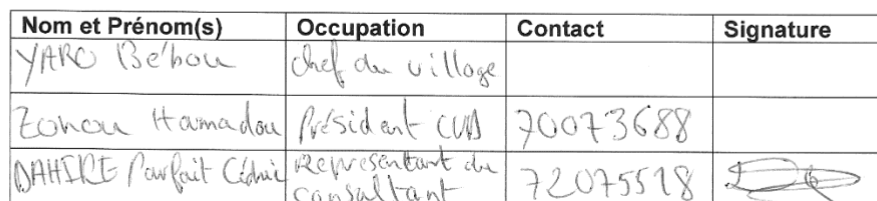 Nom et Prénom(s) Occupation Contact Signature
YARO Bébou chef du village
Zonou Hamadou Président CVD 70073688
DAHIRE Parfait Cédric Représentant du
consultant 72075518